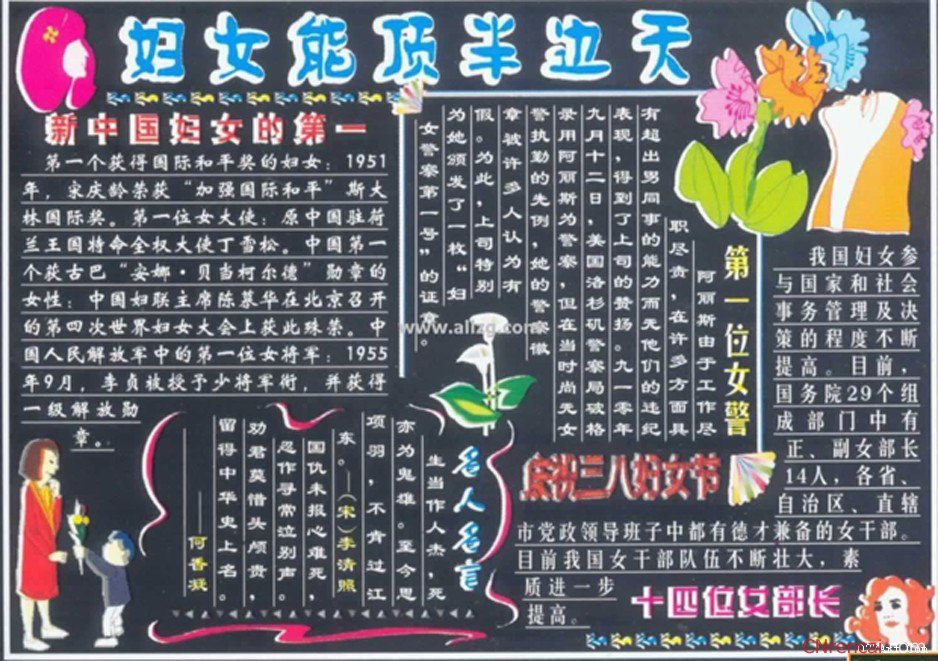 妇女能顶半边天
新中国妇女的第一
第一个获得国际和平奖的妇女：1951
年，宋庆龄荣获“加强国际和平”斯大
林国际奖。第一位女大使：原中国驻荷
兰王国特命全权大使丁雪松。中国第一
个获古巴“安娜·贝当柯尔德”勋章的
女性：中国妇联主席陈慕华在北京召开
的第四次世界妇女大会上获此殊荣。中
国人民解放军中的第一位女将军：1955
年9月，李贞被授予少将军衔，并获得
一级解放勋
章。
第一位女警
阿丽斯由于工作尽
职尽责，在许多方面具
有超出男同事的能力而无他们的违纪
表现，得到了上司的赞扬。九一零年
九月十二日，美国洛杉矶警察局破格
录用阿丽斯为警察，但在当时尚无女
警执勤的先例，她的警察徽
章被许多人认为有
假。为此，上司特别
为她颁发了一枚“妇
女警察第一号”的证章。
www.alizg.com
我国妇女参
与国家和社会
事务管理及决
策的程度不断
提高。目前，
国务院29个组
成部门中有
正、副女部长
14人，各省、
自治区、直辖
市党政领导班子中都有德才兼备的女干部。
目前我国女干部队伍不断壮大，素
质进一步
提高。
十四位女部长
庆祝三八妇女节
名人名言
生当作人杰，死
亦为鬼雄。至今思
项羽，不肯过江
东。——(宋)李清照
国仇未报心难死，
忍作寻常泣别声。
劝君莫惜头颅贵，
留得中华史上名。
——何香凝